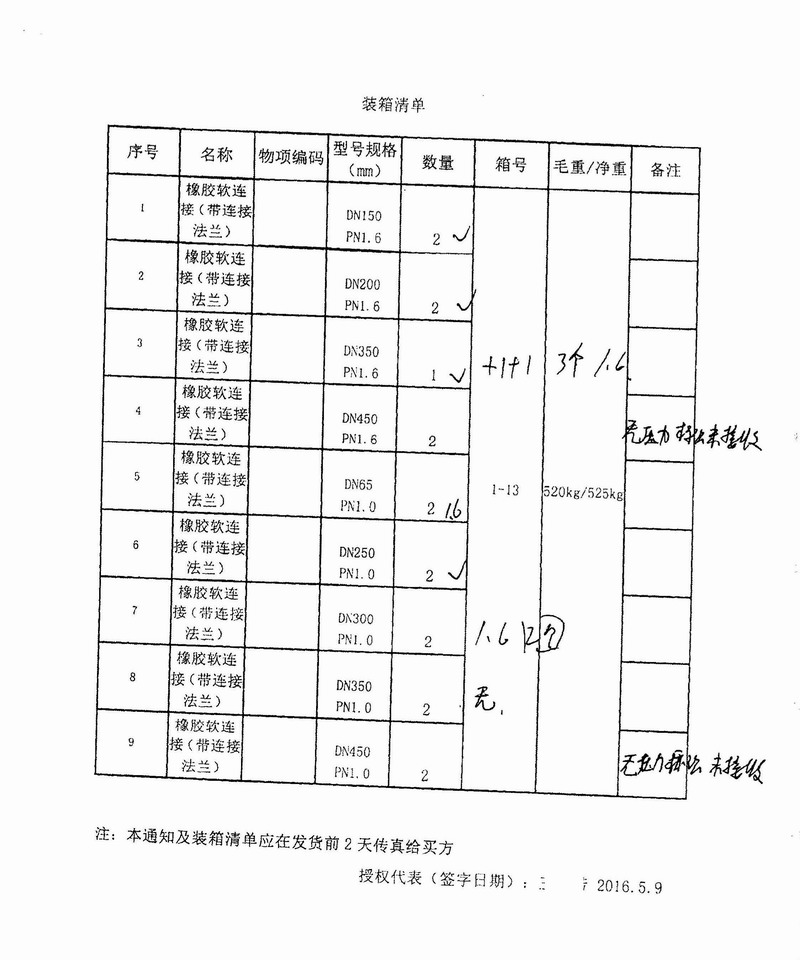 装箱清单
序号 名称 物项编码 型号规格(mm) 数量 箱号 毛重/净重 备注
1 橡胶软连接(带连接法兰) DN150 PN1.6 2 ✓
2 橡胶软连接(带连接法兰) DN200 PN1.6 2 ✓
3 橡胶软连接(带连接法兰) DN350 PN1.6 1 ✓ +1+1 3个 1.6
4 橡胶软连接(带连接法兰) DN450 PN1.6 2 无压力标识未接收
5 橡胶软连接(带连接法兰) DN65 PN1.0 2 1.6 1-13 520kg/525kg
6 橡胶软连接(带连接法兰) DN250 PN1.0 2 ✓
7 橡胶软连接(带连接法兰) DN300 PN1.0 2 1.6
8 橡胶软连接(带连接法兰) DN350 PN1.0 2 无.
9 橡胶软连接(带连接法兰) DN450 PN1.0 2 无压力标识未接收
注: 本通知及装箱清单应在发货前2天传真给买方
授权代表(签字日期): 2016.5.9